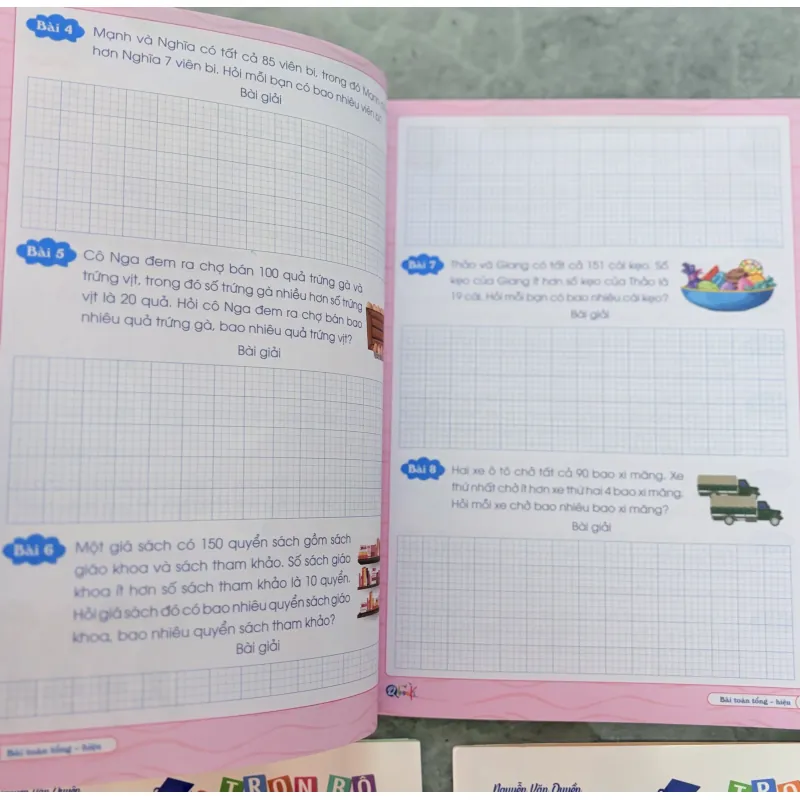 Bài 4
Mạnh và Nghĩa có tất cả 85 viên bi, trong đó Mạnh
hơn Nghĩa 7 viên bi. Hỏi mỗi bạn có bao nhiêu viên
Bài giải
Bài 5
Cô Nga đem ra chợ bán 100 quả trứng gà và
trứng vịt, trong đó số trứng gà nhiều hơn số trứng
vịt là 20 quả. Hỏi cô Nga đem ra chợ bán bao
nhiêu quả trứng gà, bao nhiêu quả trứng vịt?
Bài giải
Bài 6
Một giá sách có 150 quyển sách gồm sách
giáo khoa và sách tham khảo. Số sách giáo
khoa ít hơn số sách tham khảo là 10 quyển.
Hỏi giá sách đó có bao nhiêu quyển sách giáo
khoa, bao nhiêu quyển sách tham khảo?
Bài giải
Bài toán tổng – hiệu
Bài 7
Thảo và Giang có tất cả 151 cái kẹo. Số
kẹo của Giang ít hơn số kẹo của Thảo là
19 cái. Hỏi mỗi bạn có bao nhiêu cái kẹo?
Bài giải
Bài 8
Hai xe ô tô chở tất cả 90 bao xi măng. Xe
thứ nhất chở ít hơn xe thứ hai 4 bao xi măng.
Hỏi mỗi xe chở bao nhiêu bao xi măng?
Bài giải
Bài toán tổng – hiệu
TRỌN BỘ
Nguyễn Văn Duyên